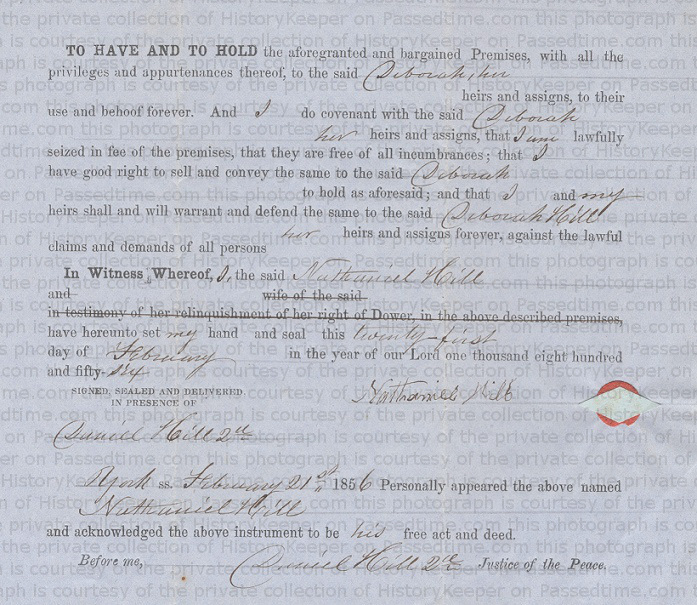 TO HAVE AND TO HOLD the aforegranted and bargained Premises, with all the
privileges and appurtenances thereof, to the said Deborah, her
heirs and assigns, to their
use and behoof forever. And I do covenant with the said Deborah
her heirs and assigns, that I am lawfully
seized in fee of the premises, that they are free of all incumbrances; that I
have good right to sell and convey the same to the said Deborah
to hold as aforesaid; and that I and my
heirs shall and will warrant and defend the same to the said Deborah Hill
her heirs and assigns forever, against the lawful
claims and demands of all persons
In Witness Whereof, I, the said Nathaniel Hill
and wife of the said
in testimony of her relinquishment of her right of Dower, in the above described premises,
have hereunto set my hand and seal this twenty-first
day of February in the year of our Lord one thousand eight hundred
and fifty-six
SIGNED, SEALED AND DELIVERED
IN PRESENCE OF
Nathaniel Hill
Daniel Hill 2nd
York ss. February 21st 1856 Personally appeared the above named
Nathaniel Hill
and acknowledged the above instrument to be his free act and deed.
Before me, Daniel Hill 2nd Justice of the Peace.
this photograph is courtesy of the private collection of HistoryKeeper on Passedtime.com